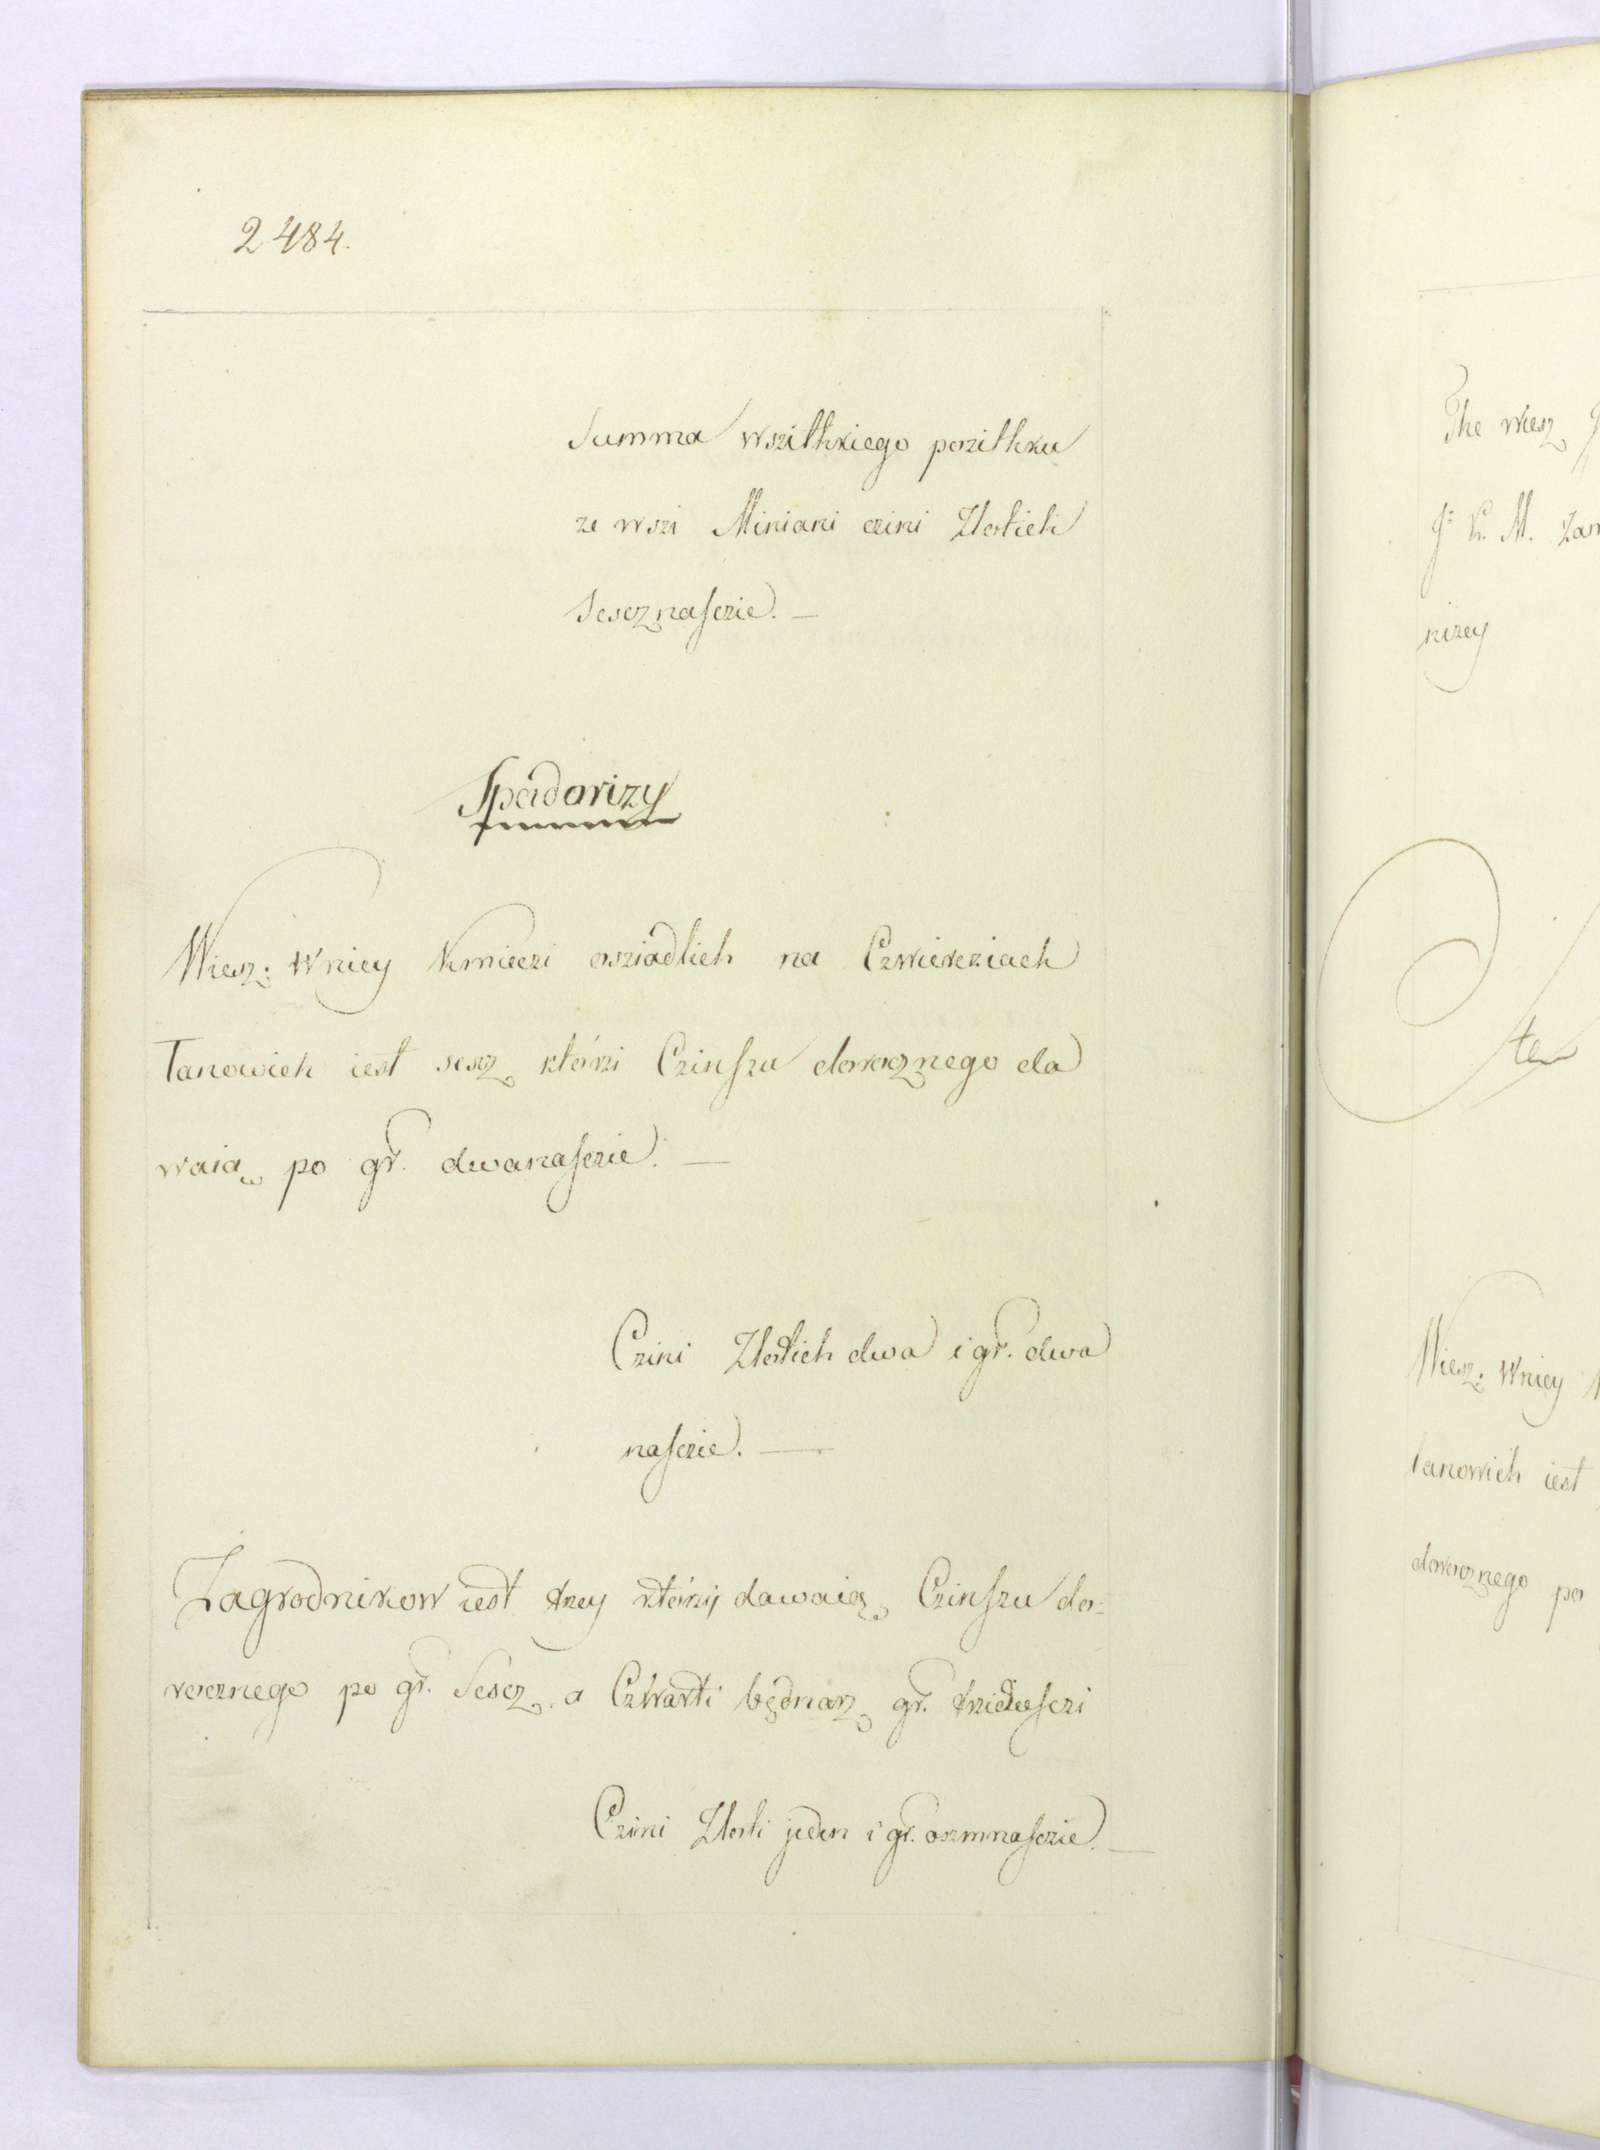 2484.
Summa wszitkiego pozitku
ze wszi Miniani czini Zlotich
Sescznascie. —
Spadorizy
Wiesz: Wniey Kmieczi osziadlich na Czwierziach
Lanowich iest sescz którzi Czinszu dorocznego da
waią po gr. dwanascie. —
Czini Zlotich dwa i gr. dwa
nascie. —
Zagrodnikow iest trzey którzy dawaią Czinszu do=
rocznego po gr. Sescz. a Czwarti będnarz gr. trzidziesczi
Czini Zloti jeden i gr. oszmnascie. —
The wiesz
J: K. M.
nizey
ten
Wiesz: Wniey
lanowich iest
dorocznego po